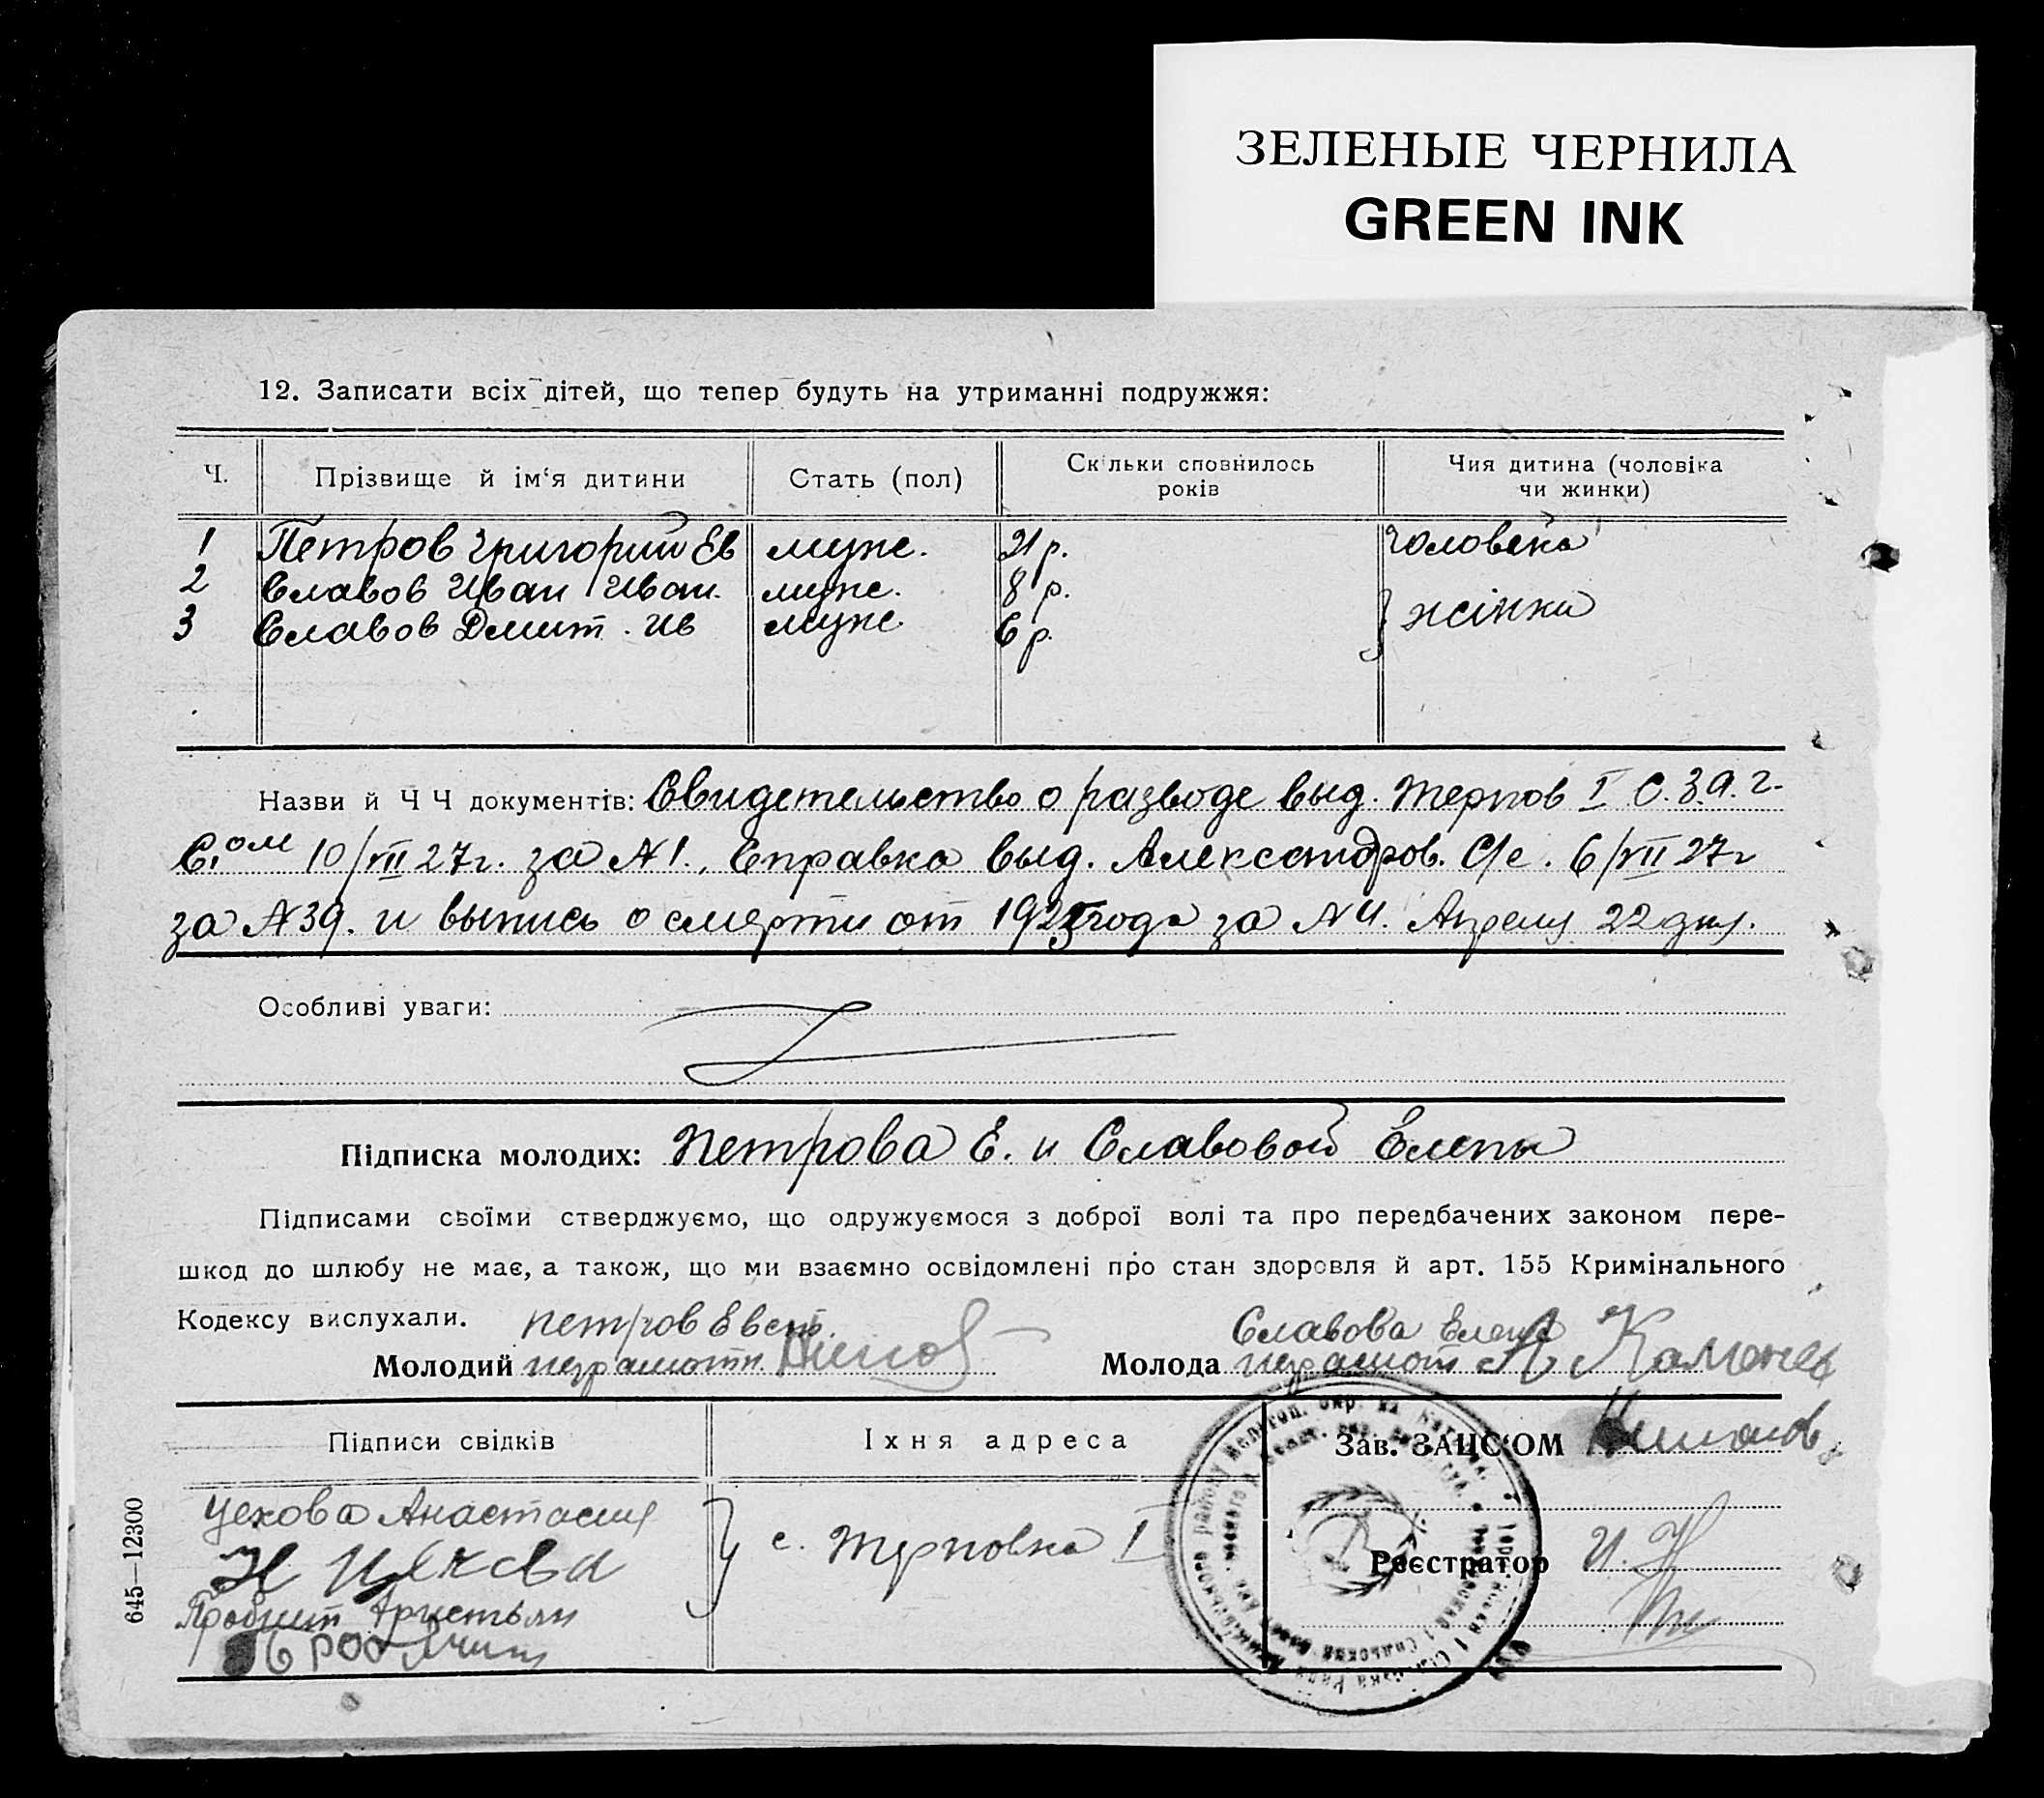 ЗЕЛЕНЫЕ ЧЕРНИЛА
GREEN INK
12. Записати всіх дітей, що тепер будуть на утриманні подружжя:
Ч. Прізвище й ім‘я дитини Стать (пол) Скільки сповнилось років Чия дитина (чоловіка чи жинки)
1 Петров Григорий Ев муже. 21 р. Чоловека
2 Славов Иван Иван. муже. 8 р. } жінки
3 Славов Дмит. Ив муже 6 р.
Назви й Ч Ч документів: Свидетельство о разводе выд. Терпов I С. З.А.Г.
С.ом 10/VII 27 г. за № 1., Справка выд. Александров. С/с. 6/VII 27 г
за № 39. и выпись о смерти от года за № 4. Апреля 22 дня.
Особливі уваги:
Підписка молодих: Петрова Е. и Славовой Елены
Підписами своїми стверджуємо, що одружуємося з доброї волі та про передбачених законом пере-
шкод до шлюбу не має, а також, що ми взаємно освідомлені про стан здоровля й арт. 155 Кримінального
Кодексу вислухали. Петров Евст. Славова Елена
Молодий неграмотн. Молода неграмот
Підписи свідків Їхня адреса Зав. ЗАЦС‘ОМ
Цехова Анастасия } с. Терновка I
Н Цехова Реєстратор
645—12300